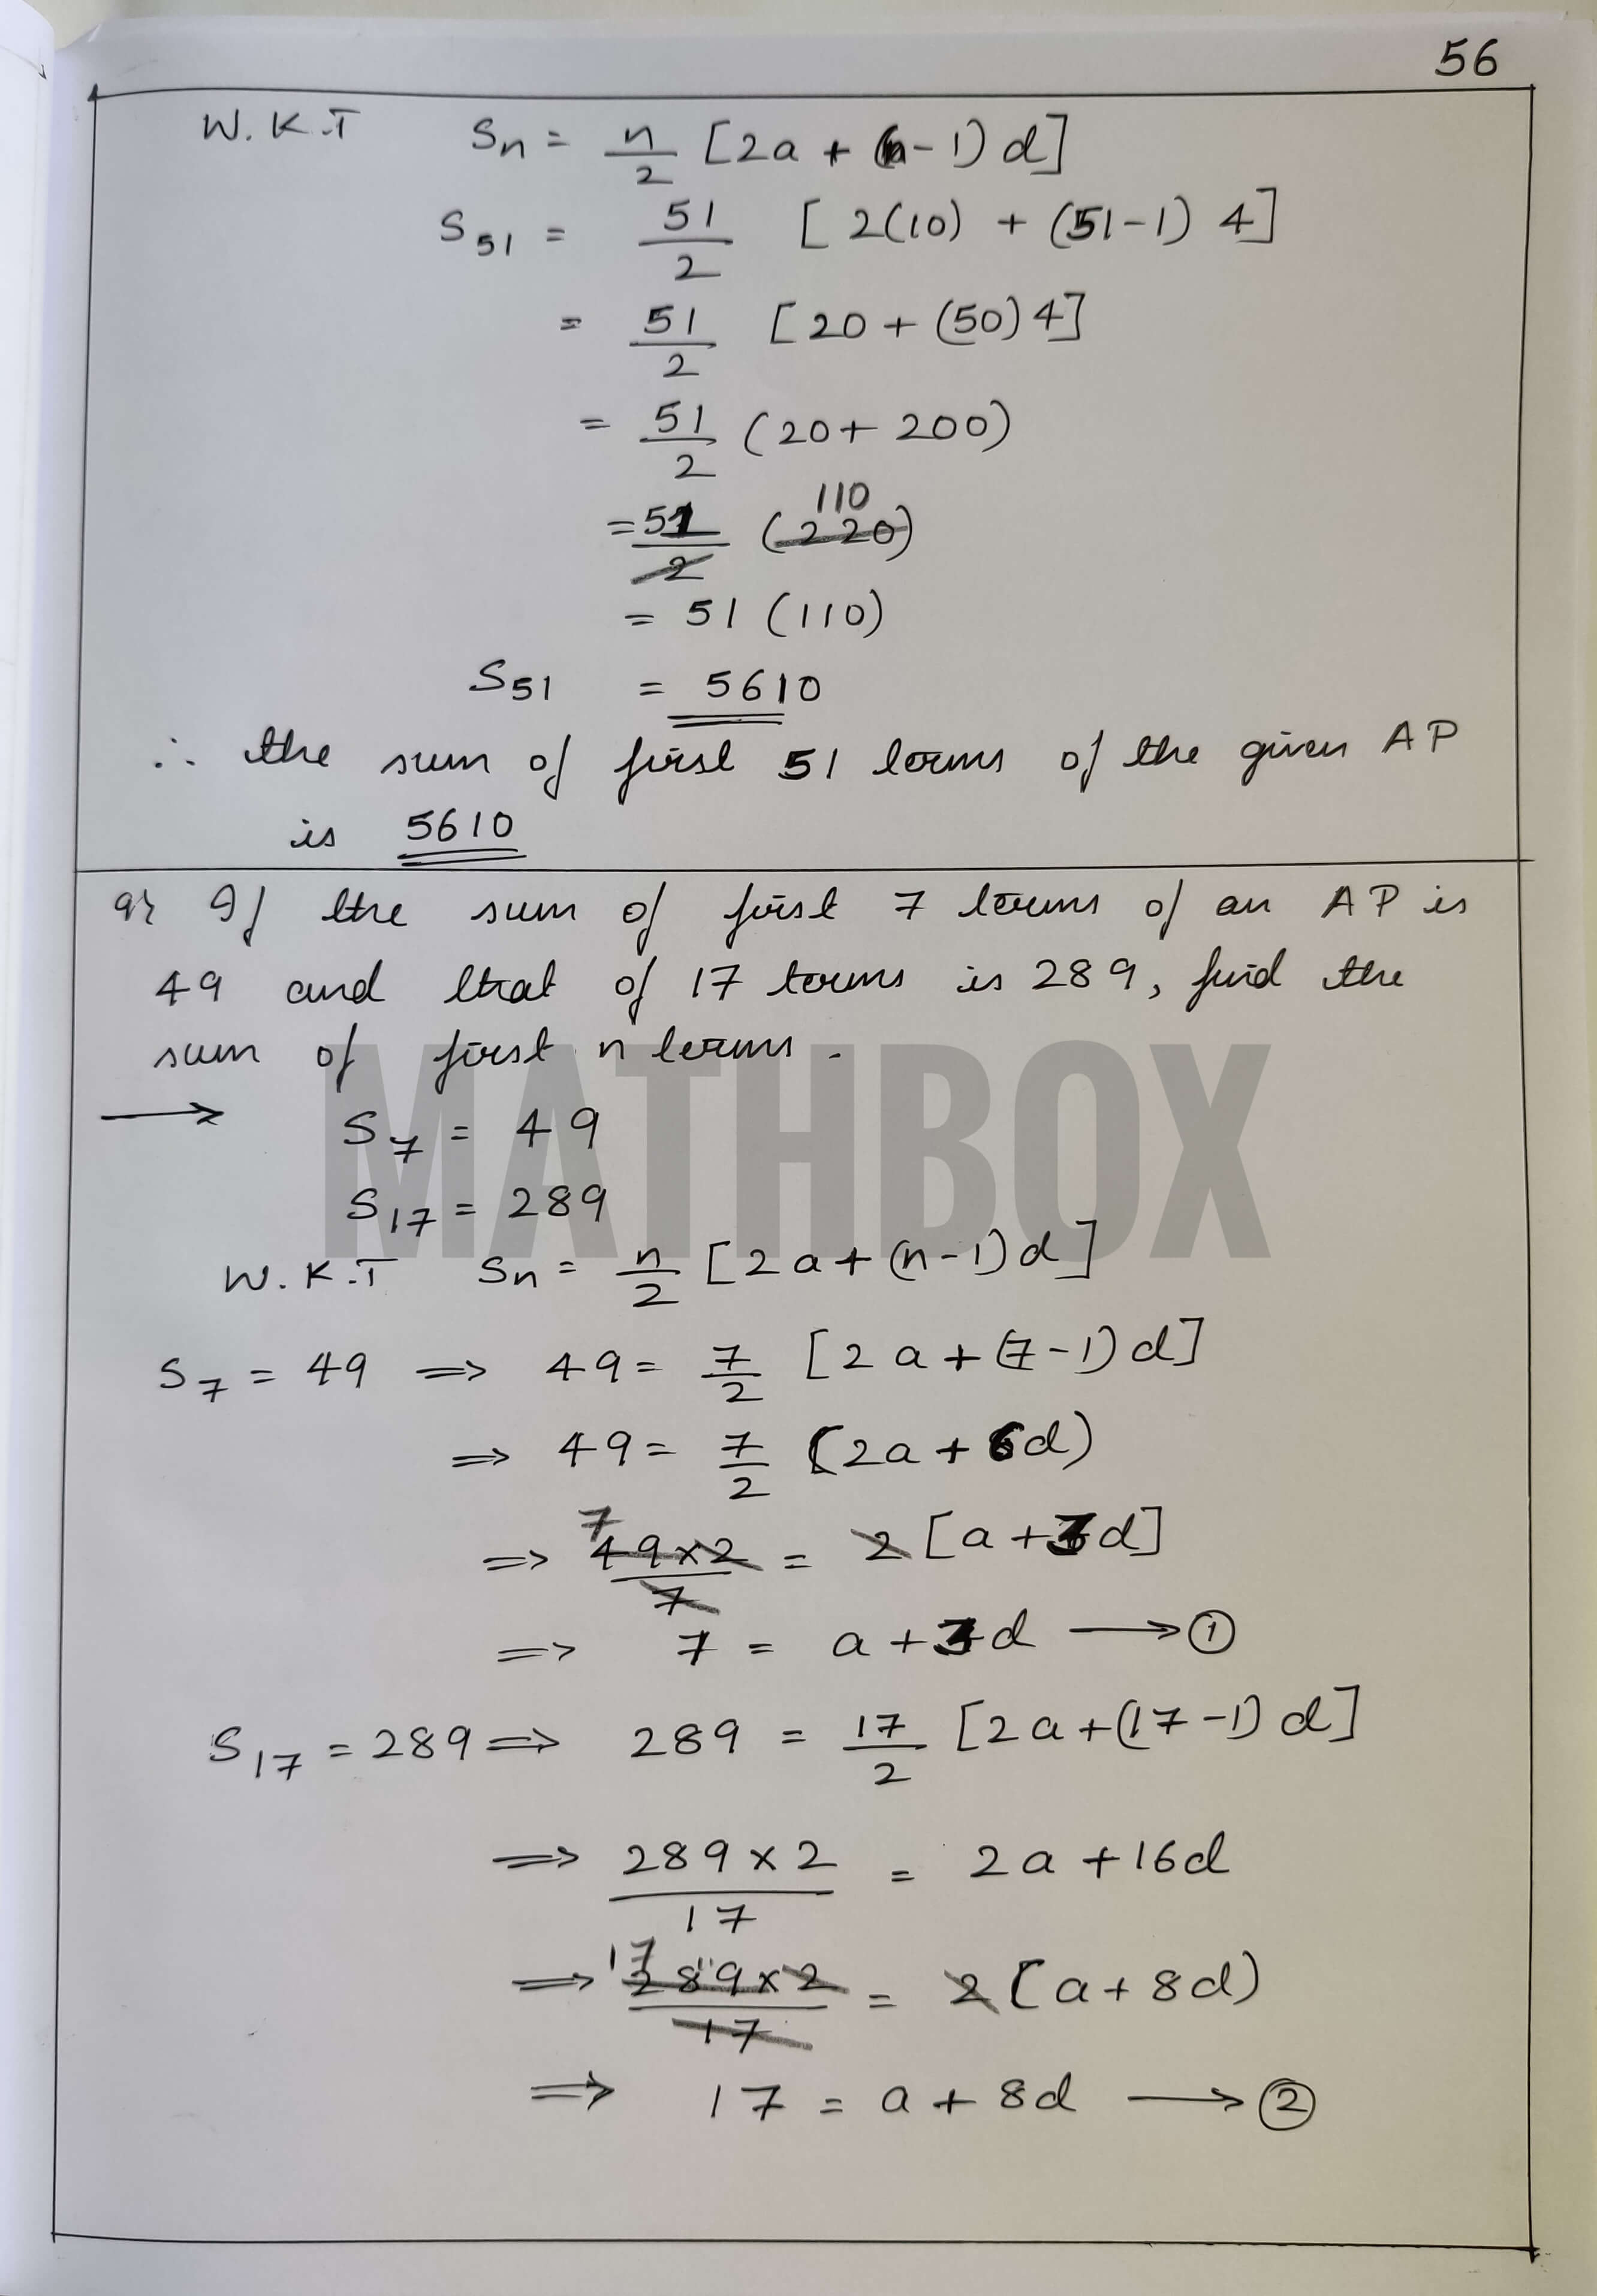 56
W.K.T Sn = n/2 [2a + (n-1) d]
S51 = 51/2 [2(10) + (51-1) 4]
= 51/2 [20 + (50) 4]
= 51/2 (20 + 200)
110
= 51/2 (220)
= 51 (110)
S51 = 5610
∴ the sum of first 51 terms of the given AP
is 5610
9} If the sum of first 7 terms of an AP is
49 and that of 17 terms is 289, find the
sum of first n terms.
MATHBOX
→ S7 = 49
S17 = 289
W.K.T Sn = n/2 [2a + (n-1) d]
S7 = 49 ⇒ 49 = 7/2 [2a + (7-1) d]
⇒ 49 = 7/2 (2a + 6d)
7
⇒ 49×2/7 = 2 [a + 3d]
⇒ 7 = a + 3d → ①
S17 = 289 ⇒ 289 = 17/2 [2a + (17-1) d]
⇒ 289×2/17 = 2a + 16d
17
⇒ 289×2/17 = 2 [a + 8d)
⇒ 17 = a + 8d → ②